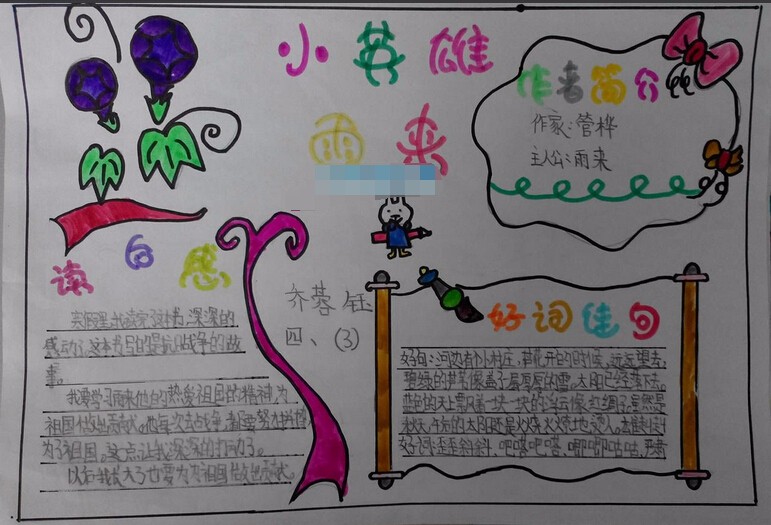 小英雄
雨来
作者简介
作家:管桦
主人公:雨来
读后感
寒假里,我读完这本书,深深的
感动了,这本书写的是抗战争的故
事。
我要学习雨来他的热爱祖国的精神,为
祖国作出贡献。他每次去战争,都要努力
为了祖国。这点让我深深的打动了。
以后我长大了也要为祖国做出贡献。
齐蓉钰
四、(3)
好词佳句
好句:河边有个小村庄,芦花开的时候,远远望去,
碧绿的芦苇像盖了层厚厚的雪。太阳已经落下去。
蓝色的天上飘着一块一块的浮云像红绸子,虽然是
秋天,午后的太阳还是火烧火燎地烫人。
好词:歪歪斜斜,吧嗒吧嗒,唧唧咕咕,严肃